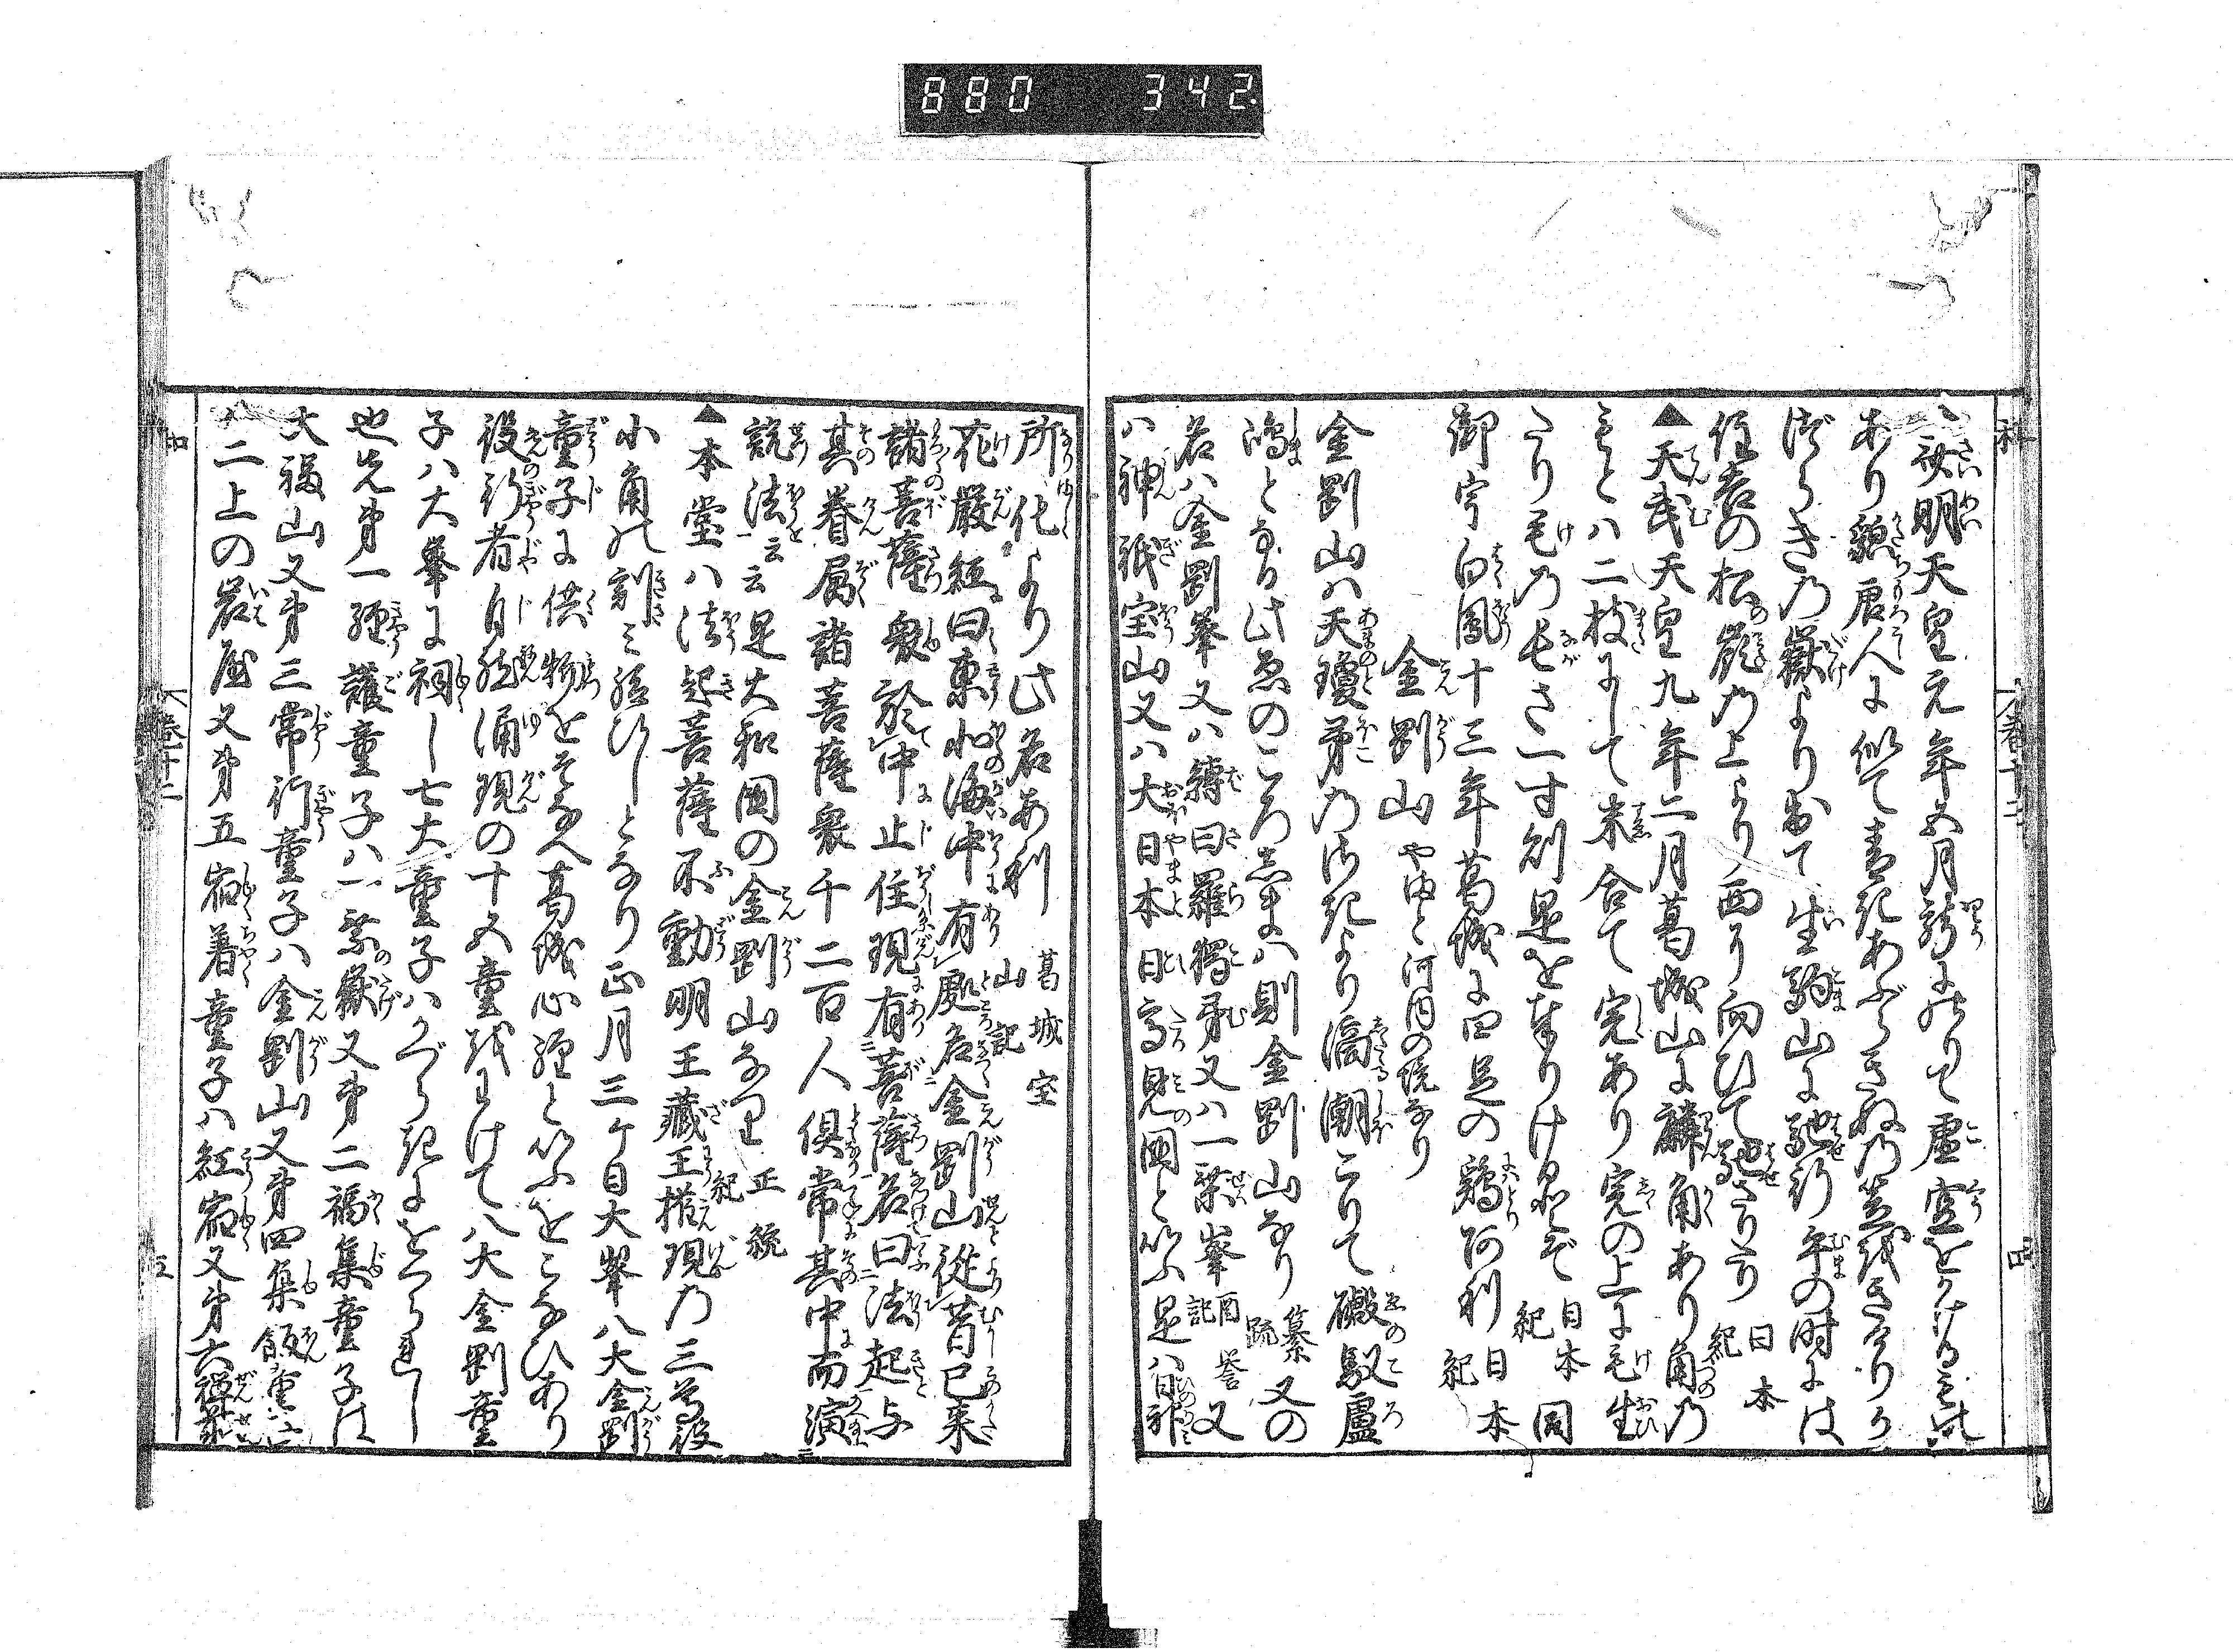 880 342
▲斉明天皇元年五月龍にのりて虚空をかけるもの
あり貌唐人に似て青きあぶらきぬの笠を着たりか
づらきの嶽より出て生駒山に馳行午の時には
住吉の松嶺の上より西に向ひて馳さりけり日本紀
▲天武天皇九年二月葛城山に麟角あり角の
もとハ二枝にして末合て宍あり宍の上に毛生
たり毛の長さ一寸則是をたてまつりけるとぞ日本紀同
御宇白鳳十三年葛城に四足の鶏有利日本紀
金剛山 やまと河内の境なり
金剛山ハ天瓊矛のさきより滴潮こりて磤馭盧
嶋となる此おのころしまハ則金剛山なり纂疏又の
名ハ金剛峯又ハ縛曰羅獨矛又ハ一乗峯酉誉記又
ハ神祇宝山又ハ大日本日高見国といふ是ハ日神
所化より此名あ利葛城宝山記
花厳経曰東北海中有処名金剛山従昔已来
諸菩薩衆於中止住現有菩薩名曰法起与
其眷属諸菩薩衆千二百人倶常其中而演
説法云云是大和国の金剛山なり正統紀
▲本堂ハ法起菩薩不動明王蔵王権現の三尊役
小角の刻ミ給ひしとなり正月三ケ日大峯八大金剛
童子に供物をそなへ葛城心経といふをおこなひあり
役行者自然涌現の十五童をわけて八大金剛童
子ハ大峯に祠し七大童子ハかづらきにをくられし
也先第一経護童子ハ一乗嶽又第二福集童子は
大福山又第三常行童子ハ金剛山又第四集飯童子
ハ二上の岩屋又第五宿着童子ハ紅宿又第六禅前
和 巻十二 四
和 巻十二 五